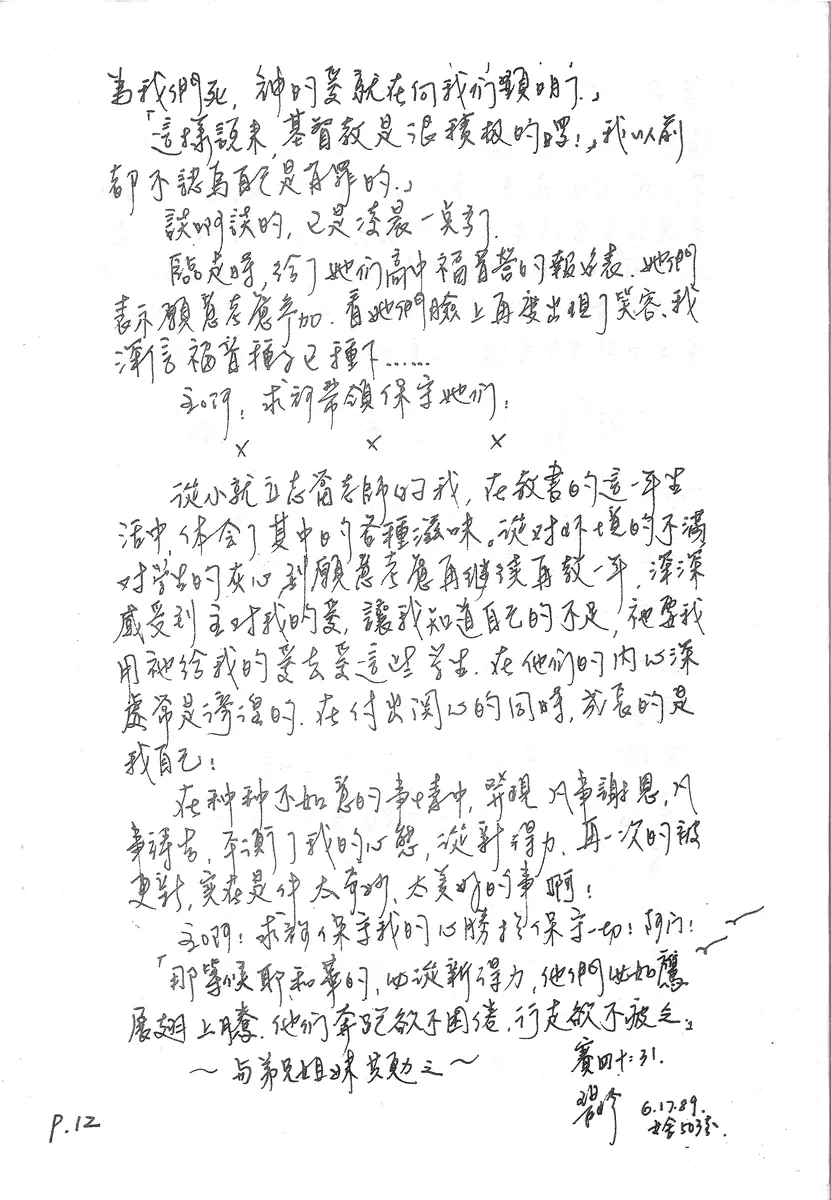 為我們死，神的愛就在向我们顯明了。」
「這樣說來，基督教是很積极的嘿！」我以前
都不認為自己是有罪的。」
談啊談的，已是凌晨一点了.
臨走時，給了她们高中福音營的報名表．她們
表示願意考慮參加．看她們臉上再度出現了笑容、我
深信福音種子已種下……
主啊！求祢帶領保守她们！
× × ×
從小就立志當老師的我，在教書的這一年生
活中，体会了其中的各種滋味。從对环境的不滿
对学生的灰心到願意考慮再继续再教一年，深深
感受到主对我的愛，讓我知道自己的不足，祂要我
用祂給我的愛去愛這些学生．在他们的内心深
處常是徬徨的．在付出関心的同時，成長的是
我自己！
在种种不如意的事情中，發現凡事謝恩，凡
事禱告，平衡了我的心態，從新得力．再一次的被
更新，實在是件太奇妙、太美好的事啊！
主啊！求祢保守我的心勝於保守一切！阿门！
「那等候耶和華的，必從新得力，他們必如鷹
展翅上騰．他们奔跑卻不困倦．行走卻不疲乏」
～与弟兄姐妹共勉之～ 賽四十:31.
碧珍 6.17.89.
女舍503室.
P.12